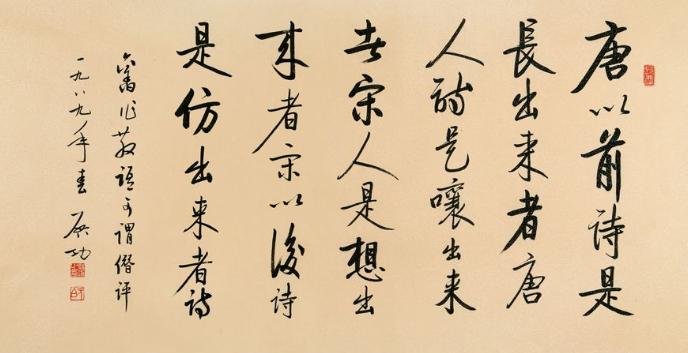 唐以前詩是
長出来者唐
人詩是嚷出来
者宋人是想出
来者宋以後詩
是仿出来者詩
舊作 語可謂僭評
一九八九年春 启功